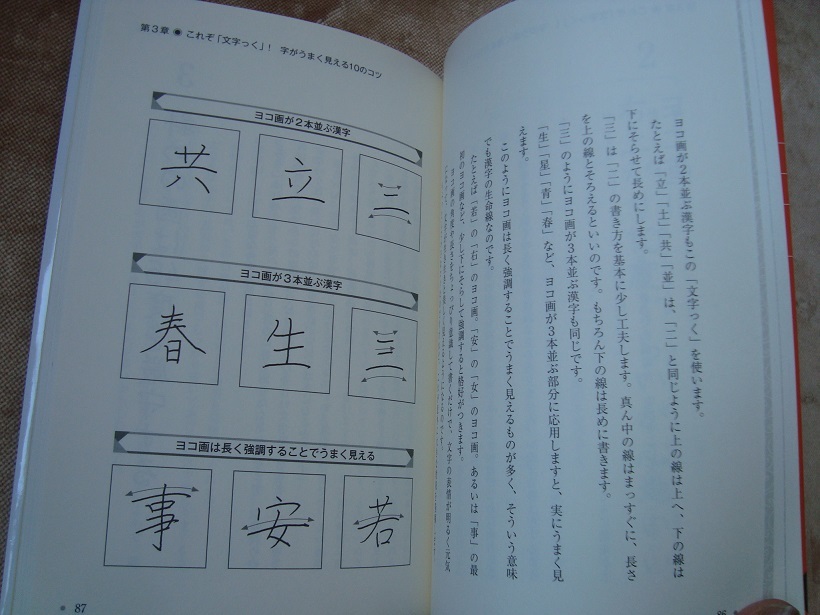 ヨコ画が2本並ぶ漢字もこの「文字っく」を使います。
たとえば「立」「土」「共」「並」は、「二」と同じように上の線は上へ、下の線は
下にそらせて長めにします。
「三」は「二」の書き方を基本に少し工夫します。真ん中の線はまっすぐに、長さ
を上の線とそろえるといいのです。もちろん下の線は長めに書きます。
「三」のようにヨコ画が3本並ぶ漢字も同じです。
「生」「星」「青」「春」など、ヨコ画が3本並ぶ部分に応用しますと、実にうまく見
えます。
このようにヨコ画は長く強調することでうまく見えるものが多く、そういう意味
でも漢字の生命線なのです。
たとえば「若」の「右」のヨコ画。「安」の「女」のヨコ画。あるいは「事」の最
初のヨコ画など、少し下にそらして強調すると格好がつきます。
ヨコ画の角度や長さをちょっぴり意識して書くだけで、文字の表情が明るく元気
86
第3章 ● これぞ「文字っく」! 字がうまく見える10のコツ
ヨコ画が2本並ぶ漢字
二 立 共
ヨコ画が3本並ぶ漢字
三 生 春
ヨコ画は長く強調することでうまく見える
若 安 事
87